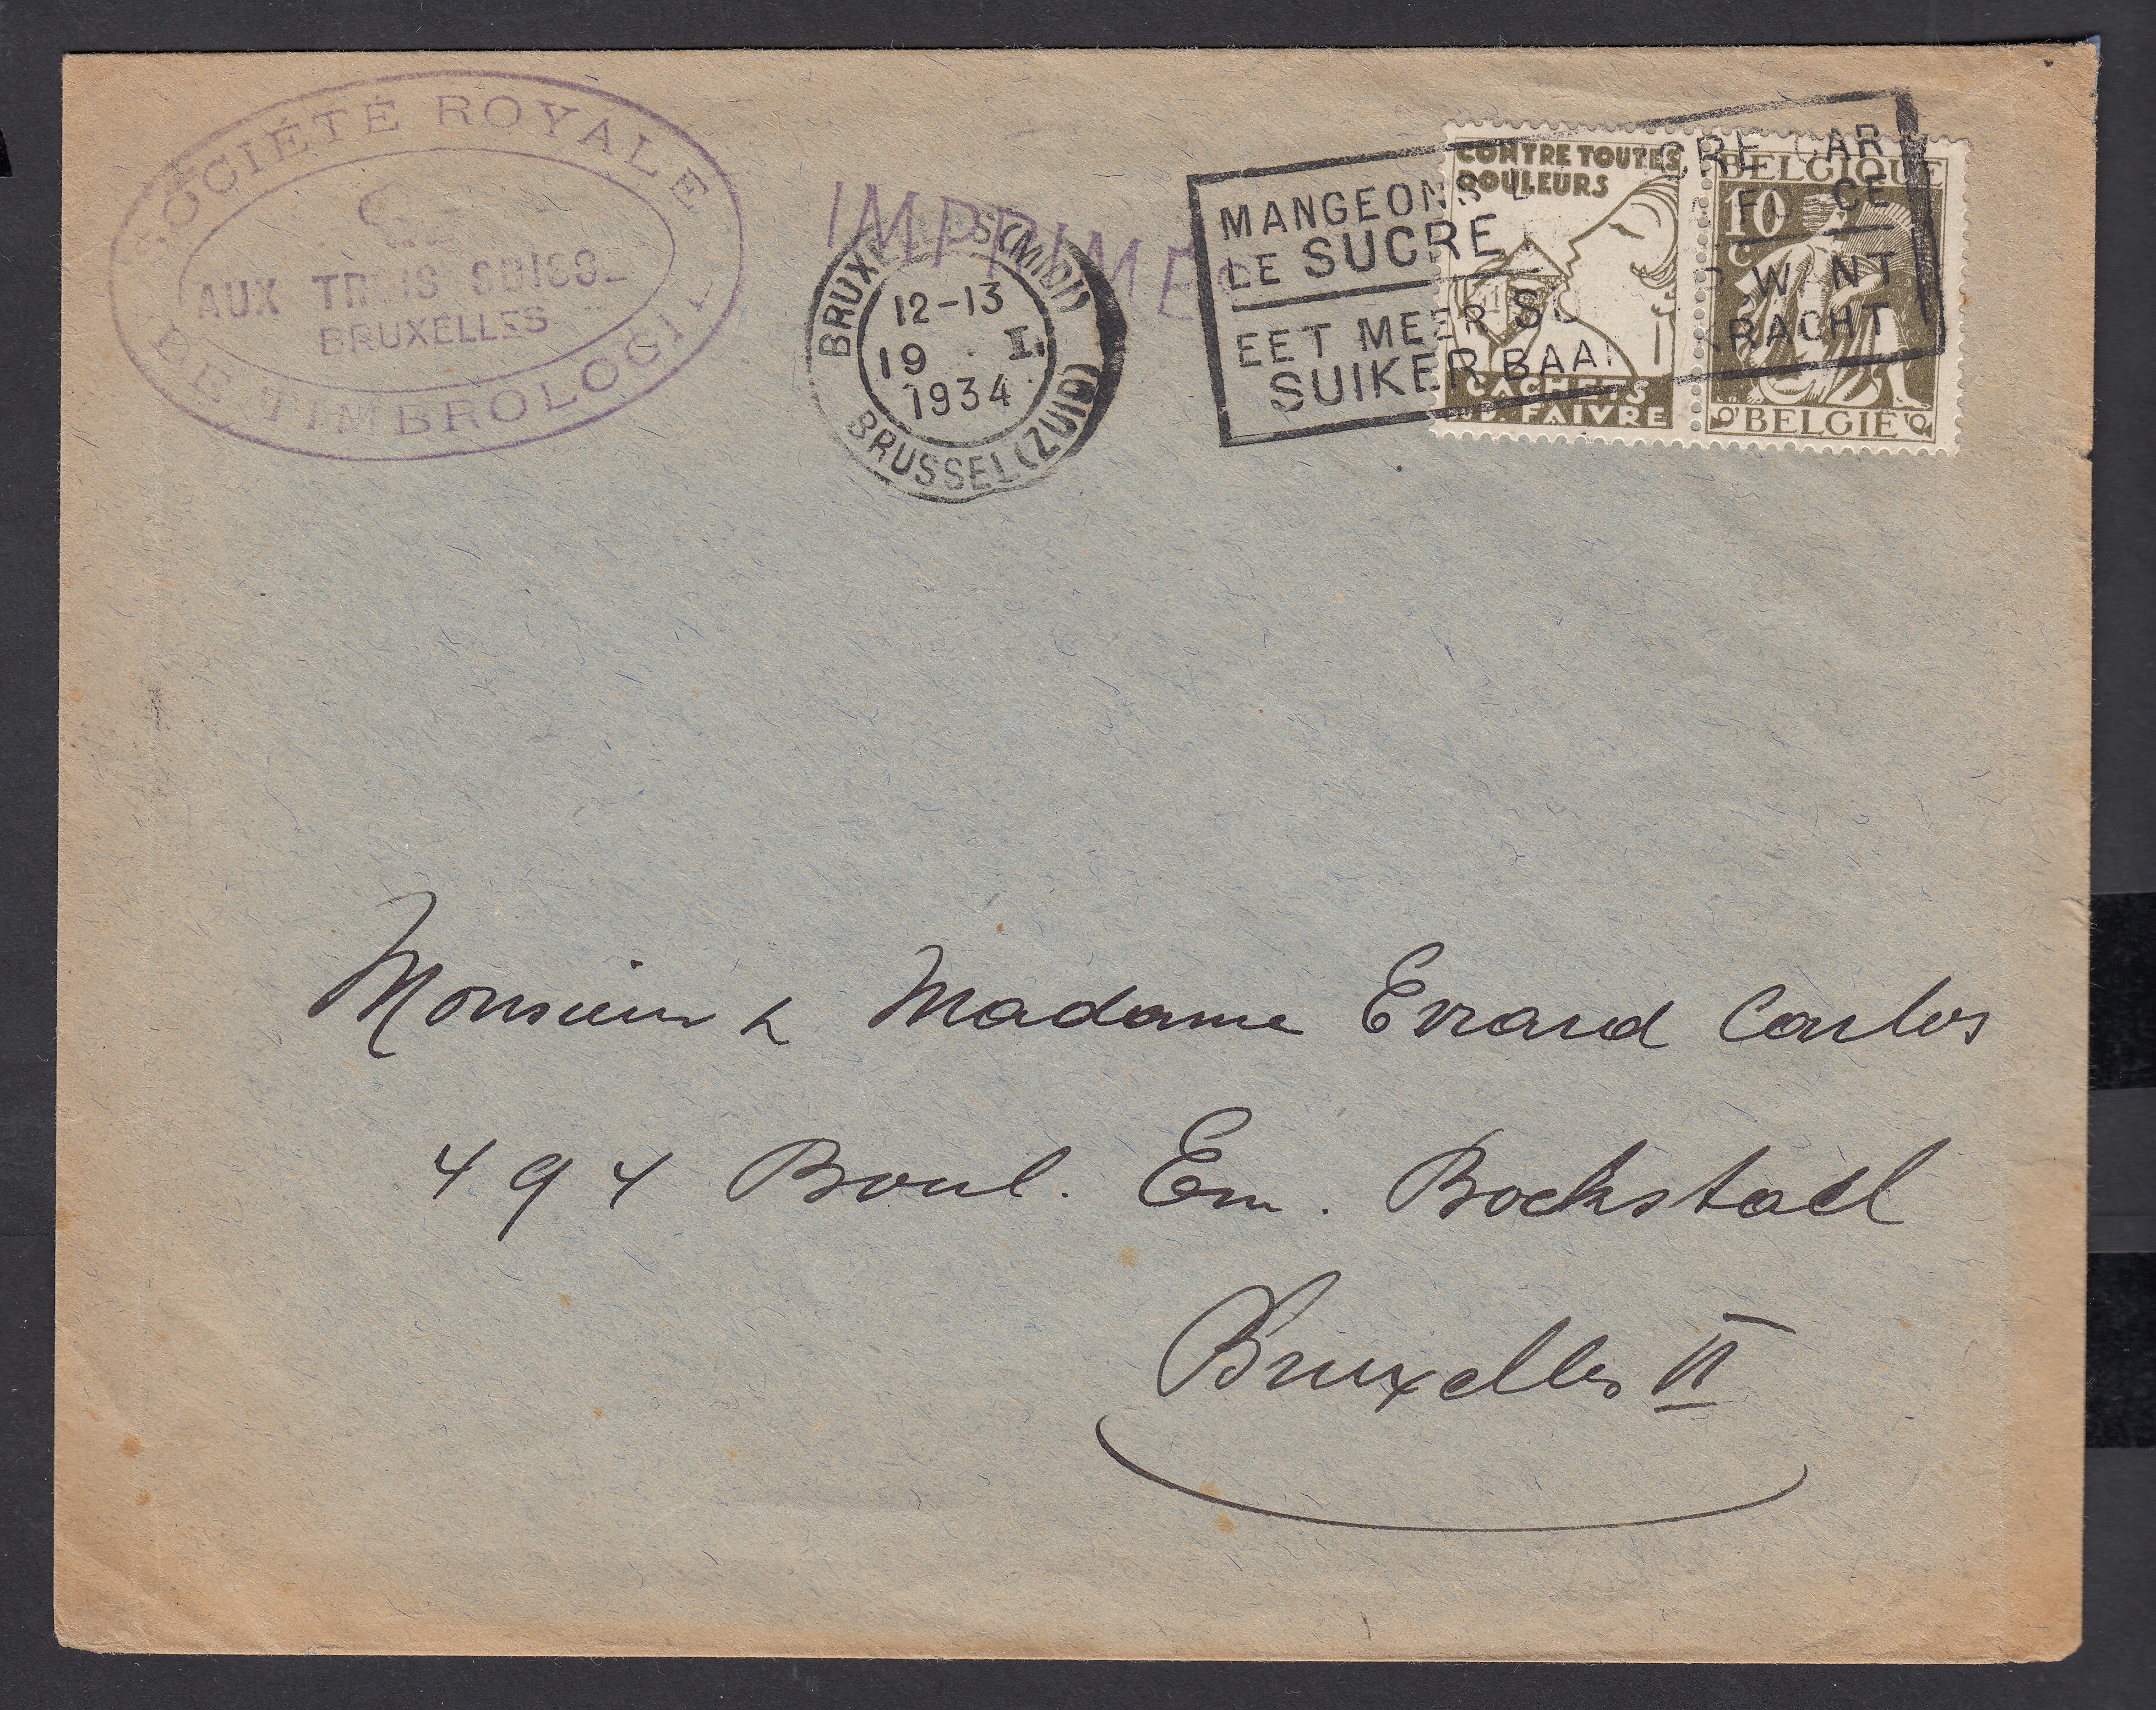 SOCIÉTÉ ROYALE
AUX TROIS SUISSE
BRUXELLES
DE TIMBROLOGIE
IMPRIMÉ
BRUXELLES (MIDI)
12-13
19 I.
1934
BRUSSEL (ZUID)
MANGEONS CRE CAR
LE SUCRE CE
EET MEER SU WANT
SUIKER BAA KRACHT
CONTRE TOUTES
DOULEURS
CACHETS
FAIVRE
BELGIQUE
10
C
BELGIË
Monsieur & Madame Evrard Carlos
494 Boul. Em. Bockstael
Bruxelles II